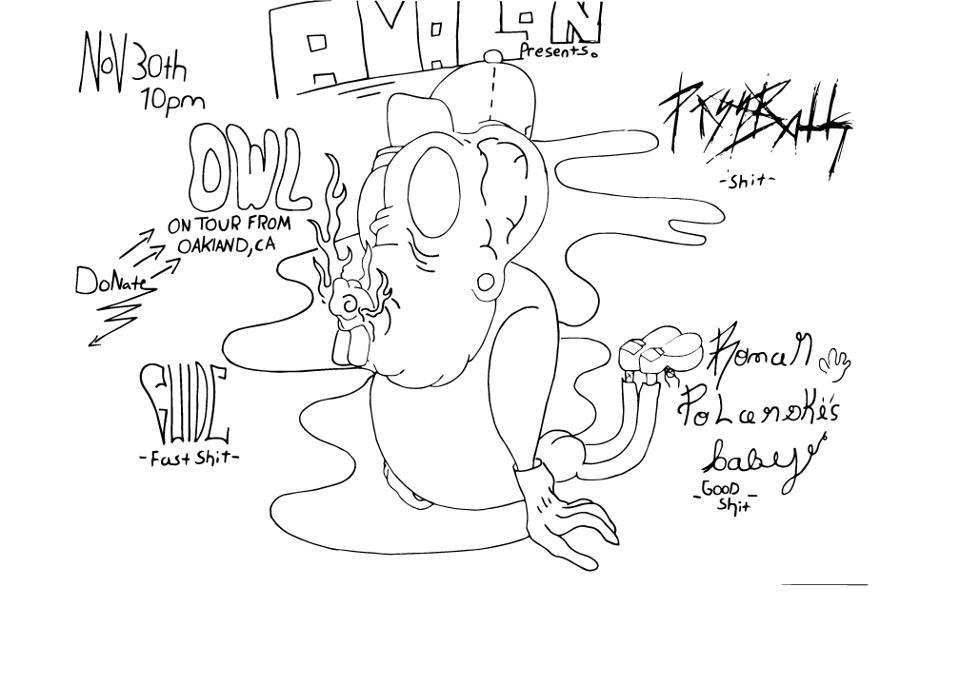 AVALON
Presents.
Nov 30th
10pm
OWL
ON TOUR FROM
OAKLAND, CA
DoNate
-Shit-
GUIDE
-Fast Shit-
Roman
PoLanski's
baby
-GOOD
Shit-